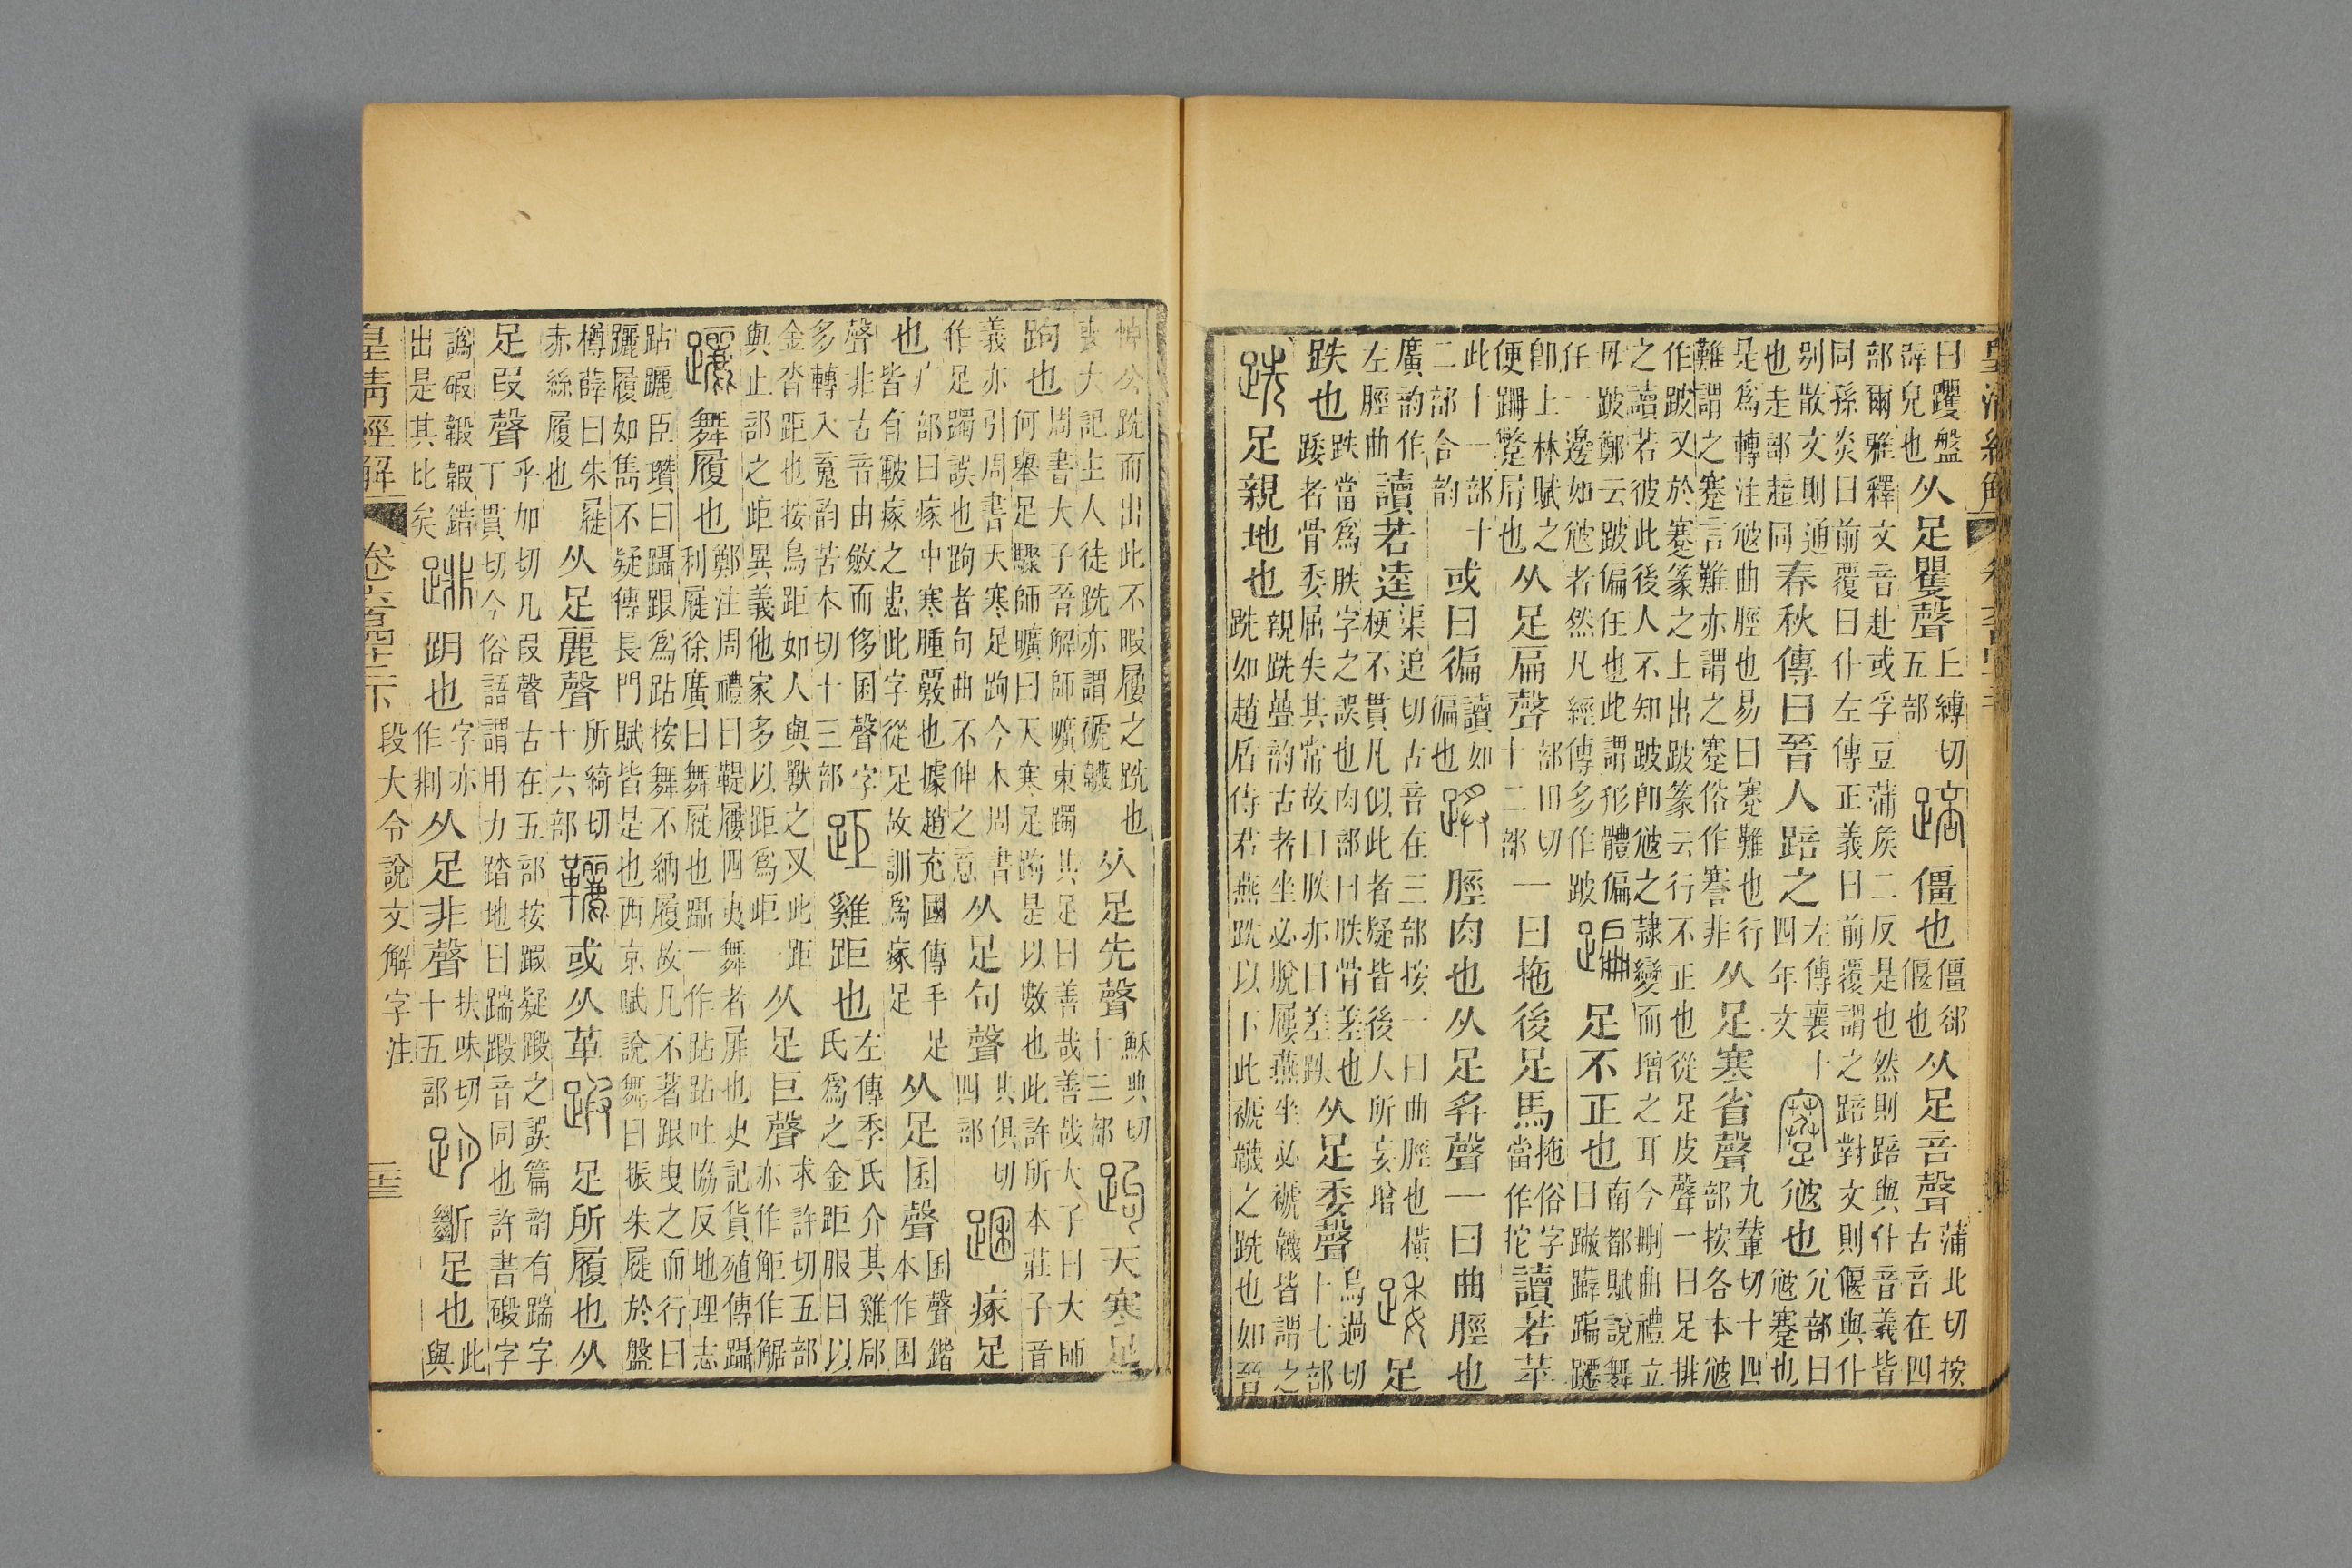 皇清經解
曰躩盤辟皃也从足瞿聲丄縛切五部踣僵也僵郤偃也从足咅聲蒲北切按古音在四
部爾雅釋文音赴或孚豆蒲矦二反是也然則踣與仆音義皆同孫炎曰前覆曰仆左傳正義曰前覆謂之踣對文則偃與仆
别散文則通也走部趌同春秋傳曰晉人踣之左傳襄十四年文蹇尥也尢部曰尥蹇也
是爲轉注尥曲脛也易曰蹇難也行難謂之蹇言難亦謂之蹇俗作謇非从足寒省聲九輦切十四部按各本尥
作跛又於蹇篆之上出跛篆云行不正也從足皮聲一曰足排之讀若彼此後人不知跛卽尥之隸變而增之耳今刪曲禮立
毋跛鄭云跛偏任也此謂形體偏任一邊如尥者然凡經傳多作跛蹁足不正也南都賦說舞曰蹴躃蹁躚
卽上林賦之便蹁蹩屑也从足扁聲部田切十二部一曰拖後足馬拖俗字當作拕讀若苹
此十一部十二部合韵或曰徧讀如徧也脛肉也从足聲一曰曲脛也
廣韵作左脛曲讀若逵渠追切古音在三部按一曰曲脛也橫梗不貫凡似此者疑皆後人所妄增踒足
跌也跌當爲胅字之誤也肉部曰胅骨差也踒者骨委屈失其常故曰胅亦曰差跌从足委聲烏過切十七部
跣足親地也親跣曡韵古者坐必脫屨燕坐必褫韤皆謂之跣如趙盾侍君燕跣以下此褫韤之跣也如晉
悼公跣而出此不暇屨之跣也喪大記主人徒跣亦謂褫韤从足先聲穌典切十三部跔天寒足
跔也周書大子晉解師曠束躅其足曰善哉善哉大子曰大師何舉足驟師曠曰天寒足跔是以數也此許所本莊子音
義亦引周書天寒足跔今本周書作足躅誤也跔者句曲不伸之意从足句聲其俱切四部瘃足
也疒部曰瘃中寒腫覈也據趙充國傳手足皆有皸瘃之患此字從足故訓爲瘃足从足囷聲囷聲鍇本作困
聲非古音由斂而侈囷聲字多轉入䰟韵苦本切十三部距雞距也左傳季氏介其雞郈氏爲之金距服曰以
金沓距也按鳥距如人與獸之叉此距與止部之歫異義他家多以距爲歫从足巨聲求許切五部亦作
躧舞履也鄭注周禮曰鞮屨四夷舞者屝也史記貨殖傳躡利屣徐廣曰舞屣也躡一作跕跕吐協反地理志
跕躧臣瓚曰躡跟爲跕按舞不納履故凡不著跟曳之而行曰躧履如雋不疑傳長門賦皆是也西京賦說舞曰振朱屣於盤
樽薛曰朱屣赤絲履也从足麗聲所綺切十六部或从革足所履也从
足叚聲乎加切凡叚聲古在五部按疑之誤篇韵有踹字丁貫切今俗語謂用力踏地曰踹音同也許書字
譌出是其比矣跳朙也字亦作剕从足非聲扶味切十五部跀斷足也此與
皇清經解 段大令說文解字注